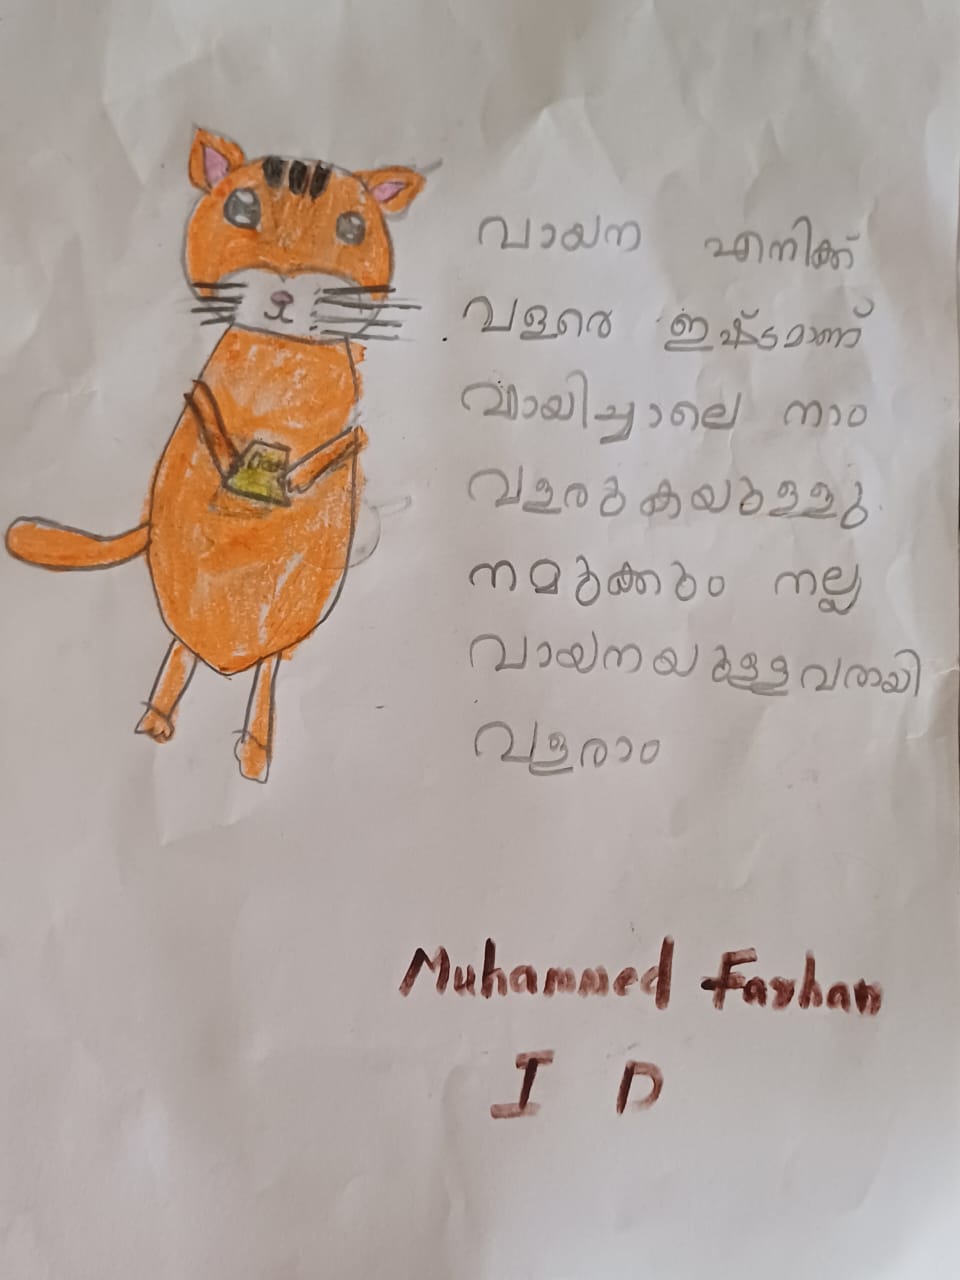 വായന എനിക്ക്
വളരെ ഇഷ്ടമാണ്
വായിച്ചാലെ നാം
വളരുകയുള്ളു
നമുക്കും നല്ല
വായനയുള്ളവരായി
വളരാം
Muhammed Farhan
I D